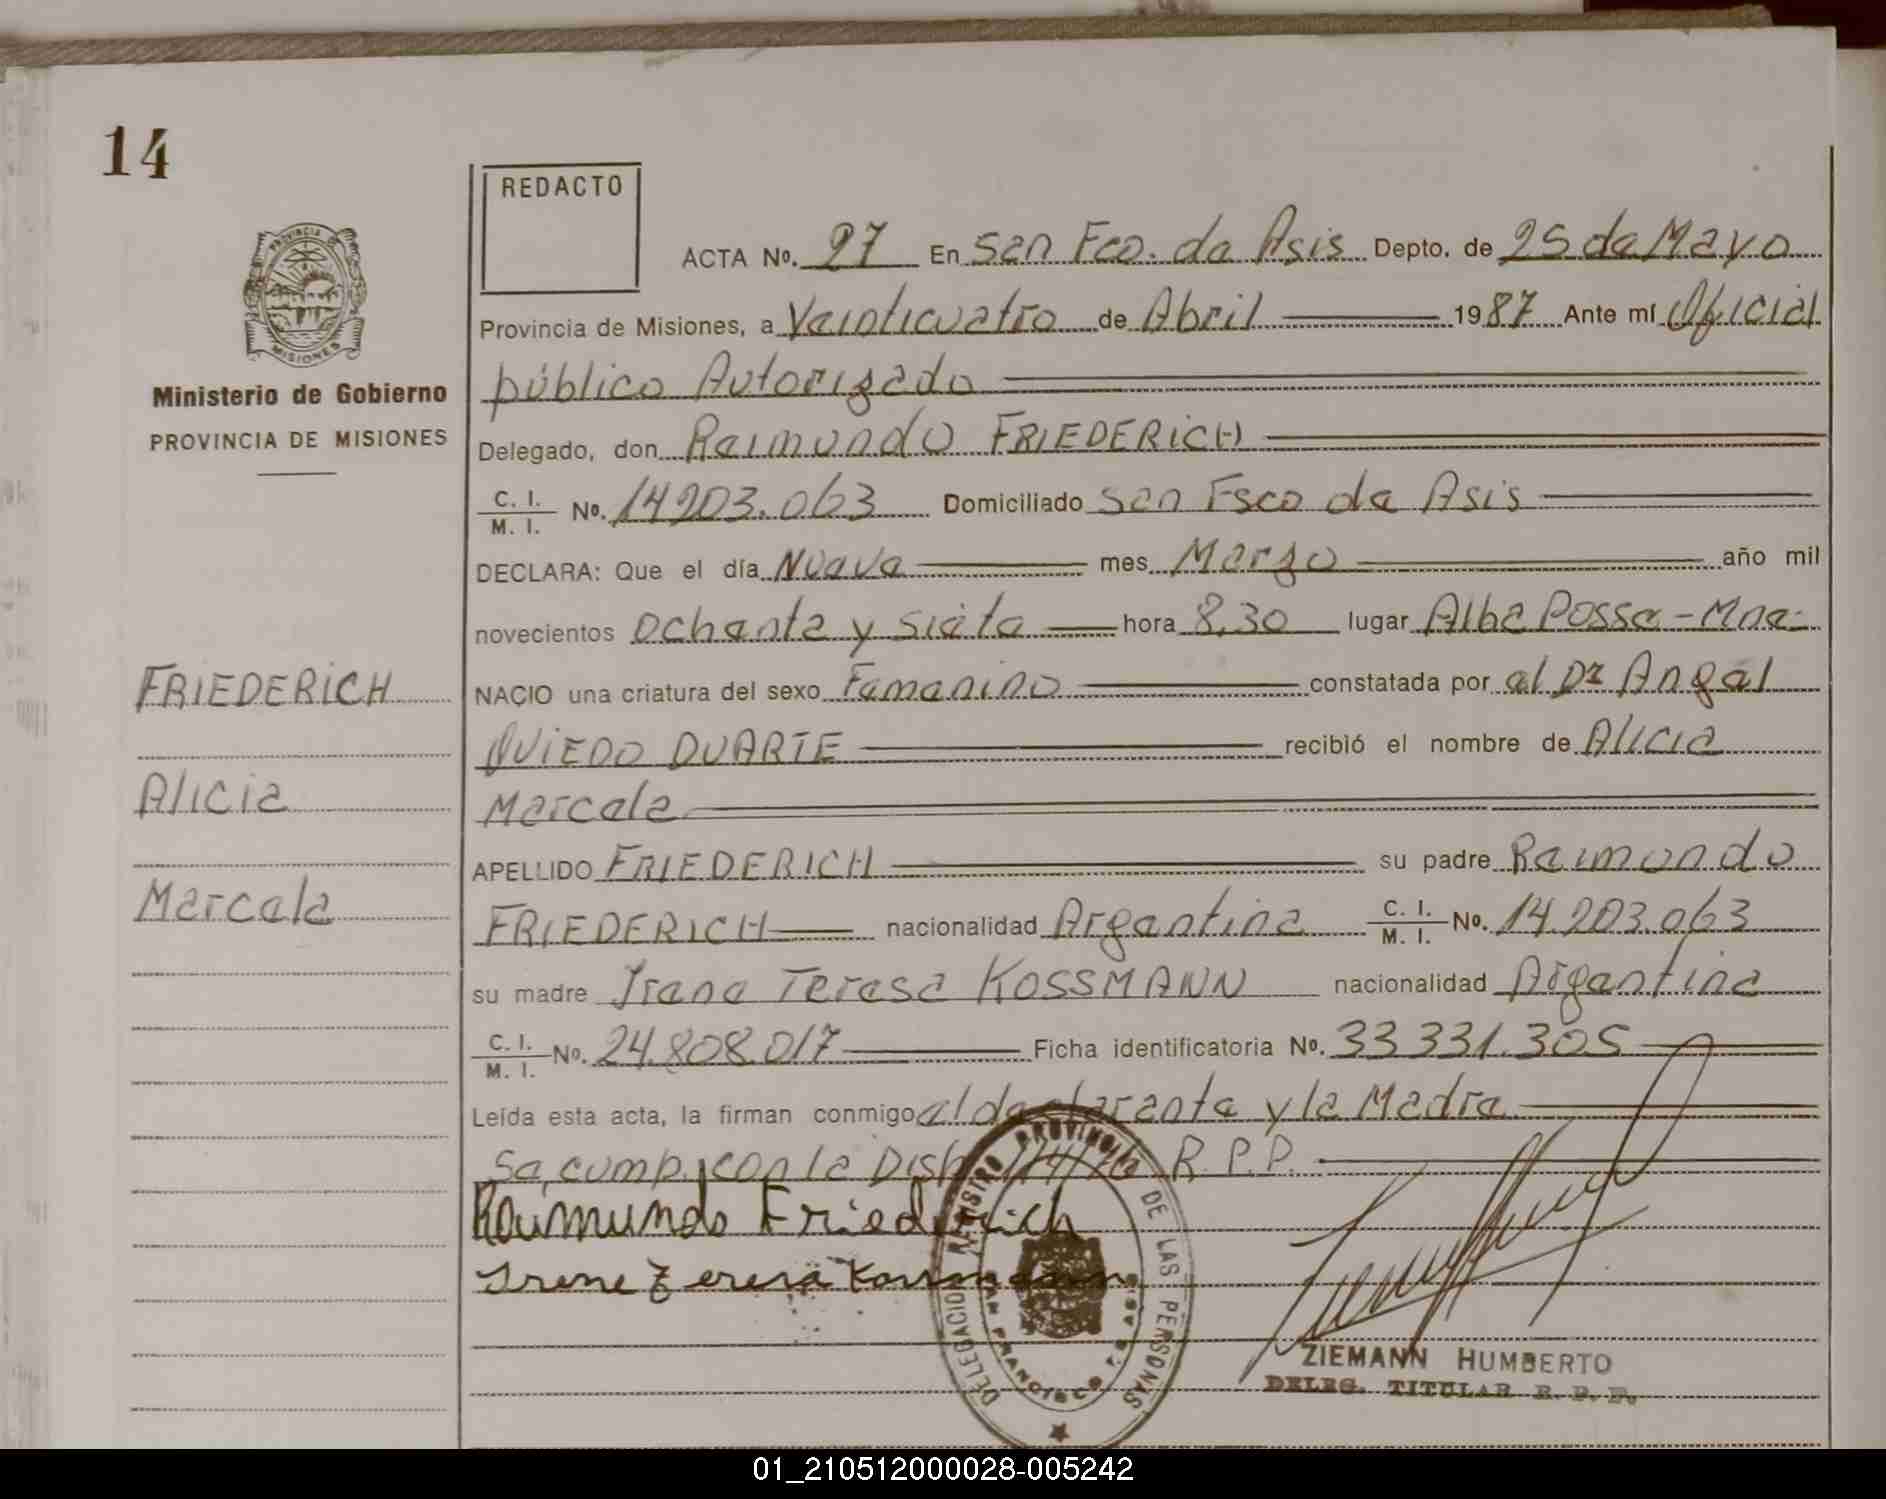 14
REDACTO
ACTA Nº. 27 En San Fco. de Asis Depto. de 25 de Mayo
Provincia de Misiones, a Veinticuatro de Abril 1987 Ante mí Oficial
público Autorizado
Delegado, don Raimundo FRIEDERICH
C. I. / M. I. Nº. 14203.063 Domiciliado San Fsco de Asis
DECLARA: Que el día Nueve mes Marzo año mil
novecientos Ochenta y siete hora 8,30 lugar Alba Posse - Mnes
NACIO una criatura del sexo Femenino constatada por el Dr Angel
OVIEDO DUARTE recibió el nombre de Alicia
Marcela
APELLIDO FRIEDERICH su padre Raimundo
FRIEDERICH nacionalidad Argentina C. I. / M. I. Nº. 14.203.063
su madre Irene Teresa KOSSMANN nacionalidad Argentina
C. I. / M. I. Nº. 24.808.017 Ficha identificatoria Nº. 33 331.305
Leída esta acta, la firman conmigo el declarante y la Madre
Se, cump. con la Disp. R.P.P.
Raimundo Friederich
Irene Teresa Kossmann
PROVINCIA DE MISIONES
Ministerio de Gobierno
PROVINCIA DE MISIONES
FRIEDERICH
Alicia
Marcela
DELEGACION REGISTRO PROVINCIAL DE LAS PERSONAS
SAN FRANCISCO DE ASIS
ZIEMANN HUMBERTO
DELEG. TITULAR R. P. P.
01_210512000028-005242